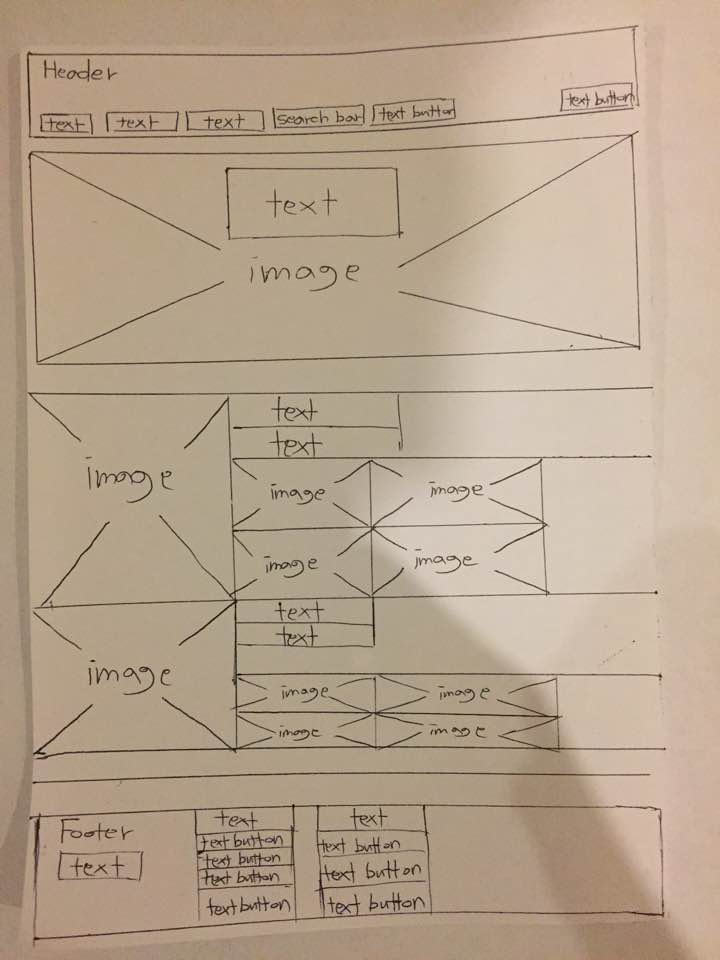 Header
text text text search bar text button text button
text
image
image
text
text
image image
image image
image
text
text
image image
image image
Footer
text
text
text button
text button
text button
text button
text
text button
text button
text button